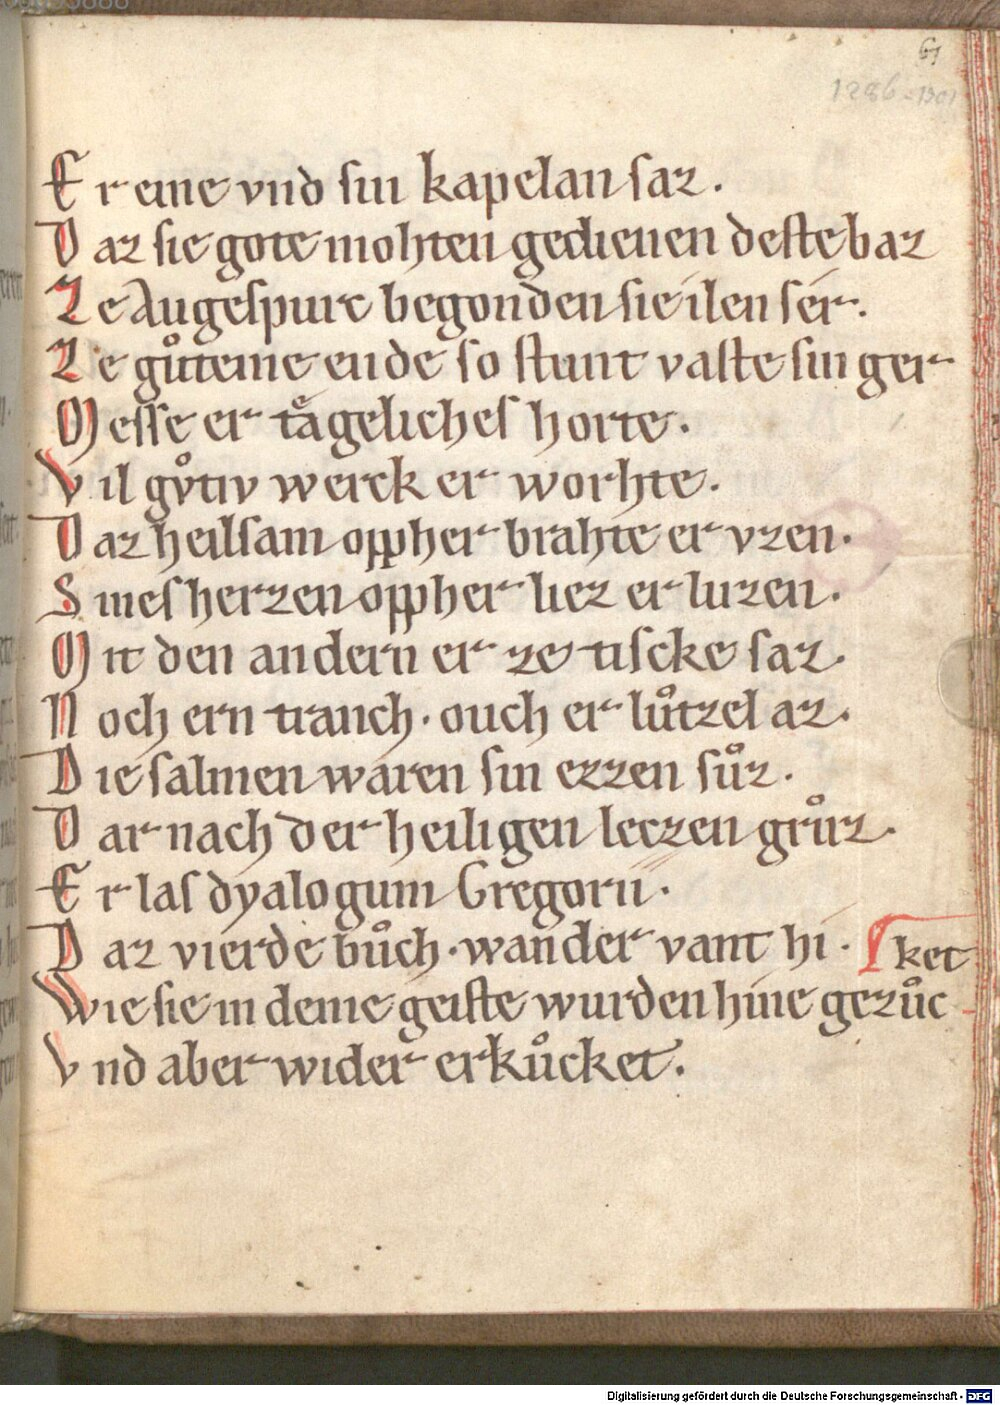 67
1286-1301
Er eine vnd sin kapelan saz.
Daz sie gote mohten gedienen deste baz
Ze Augespurc begonden sie ilen sêr.
Ze gůteme ende so stunt vaste sin ger
Messe er tägeliches horte.
Vil gv̊tiv werck er worhte.
Daz heilsam oppher brahte er vzen.
Sines herzen oppher liez er luzen.
Mit den andern er ze tiscke saz.
Noch ern tranch. ouch er lůtzel az.
Die salmen waren sin ezzen sůz.
Dar nach der heiligen leczen grůz.
Er las dyalogum Gregorii.
Daz vierde bůch. wander vant hi. ket
Wie sie in deme geiste wurden hine gezůc
Vnd aber wider erkůcket.
Digitalisierung gefördert durch die Deutsche Forschungsgemeinschaft - DFG